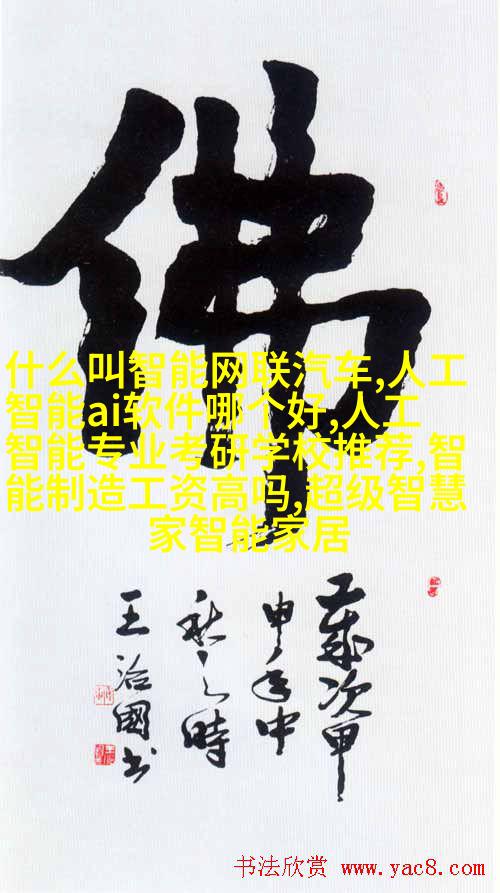 佛
什么叫智能网联汽车,人工
智能ai软件哪个好,人工
智能专业考研学校推荐,智
能制造工资高吗,超级智慧
家智能家居
歲次甲
申年中
秋之時
王治國书
书法欣赏 www.yac8.com